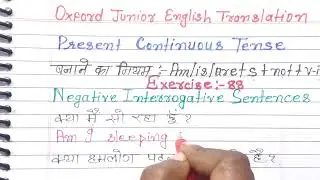 Oxford Junior English Translation
Present Continuous Tense
बनाने का नियम :- Am/is/are+s+not+v-i
Exercise:- 88
Negative Interrogative Sentences
क्या मैं सो रहा हूँ ?
Am I sleeping
क्या हमलोग है ?